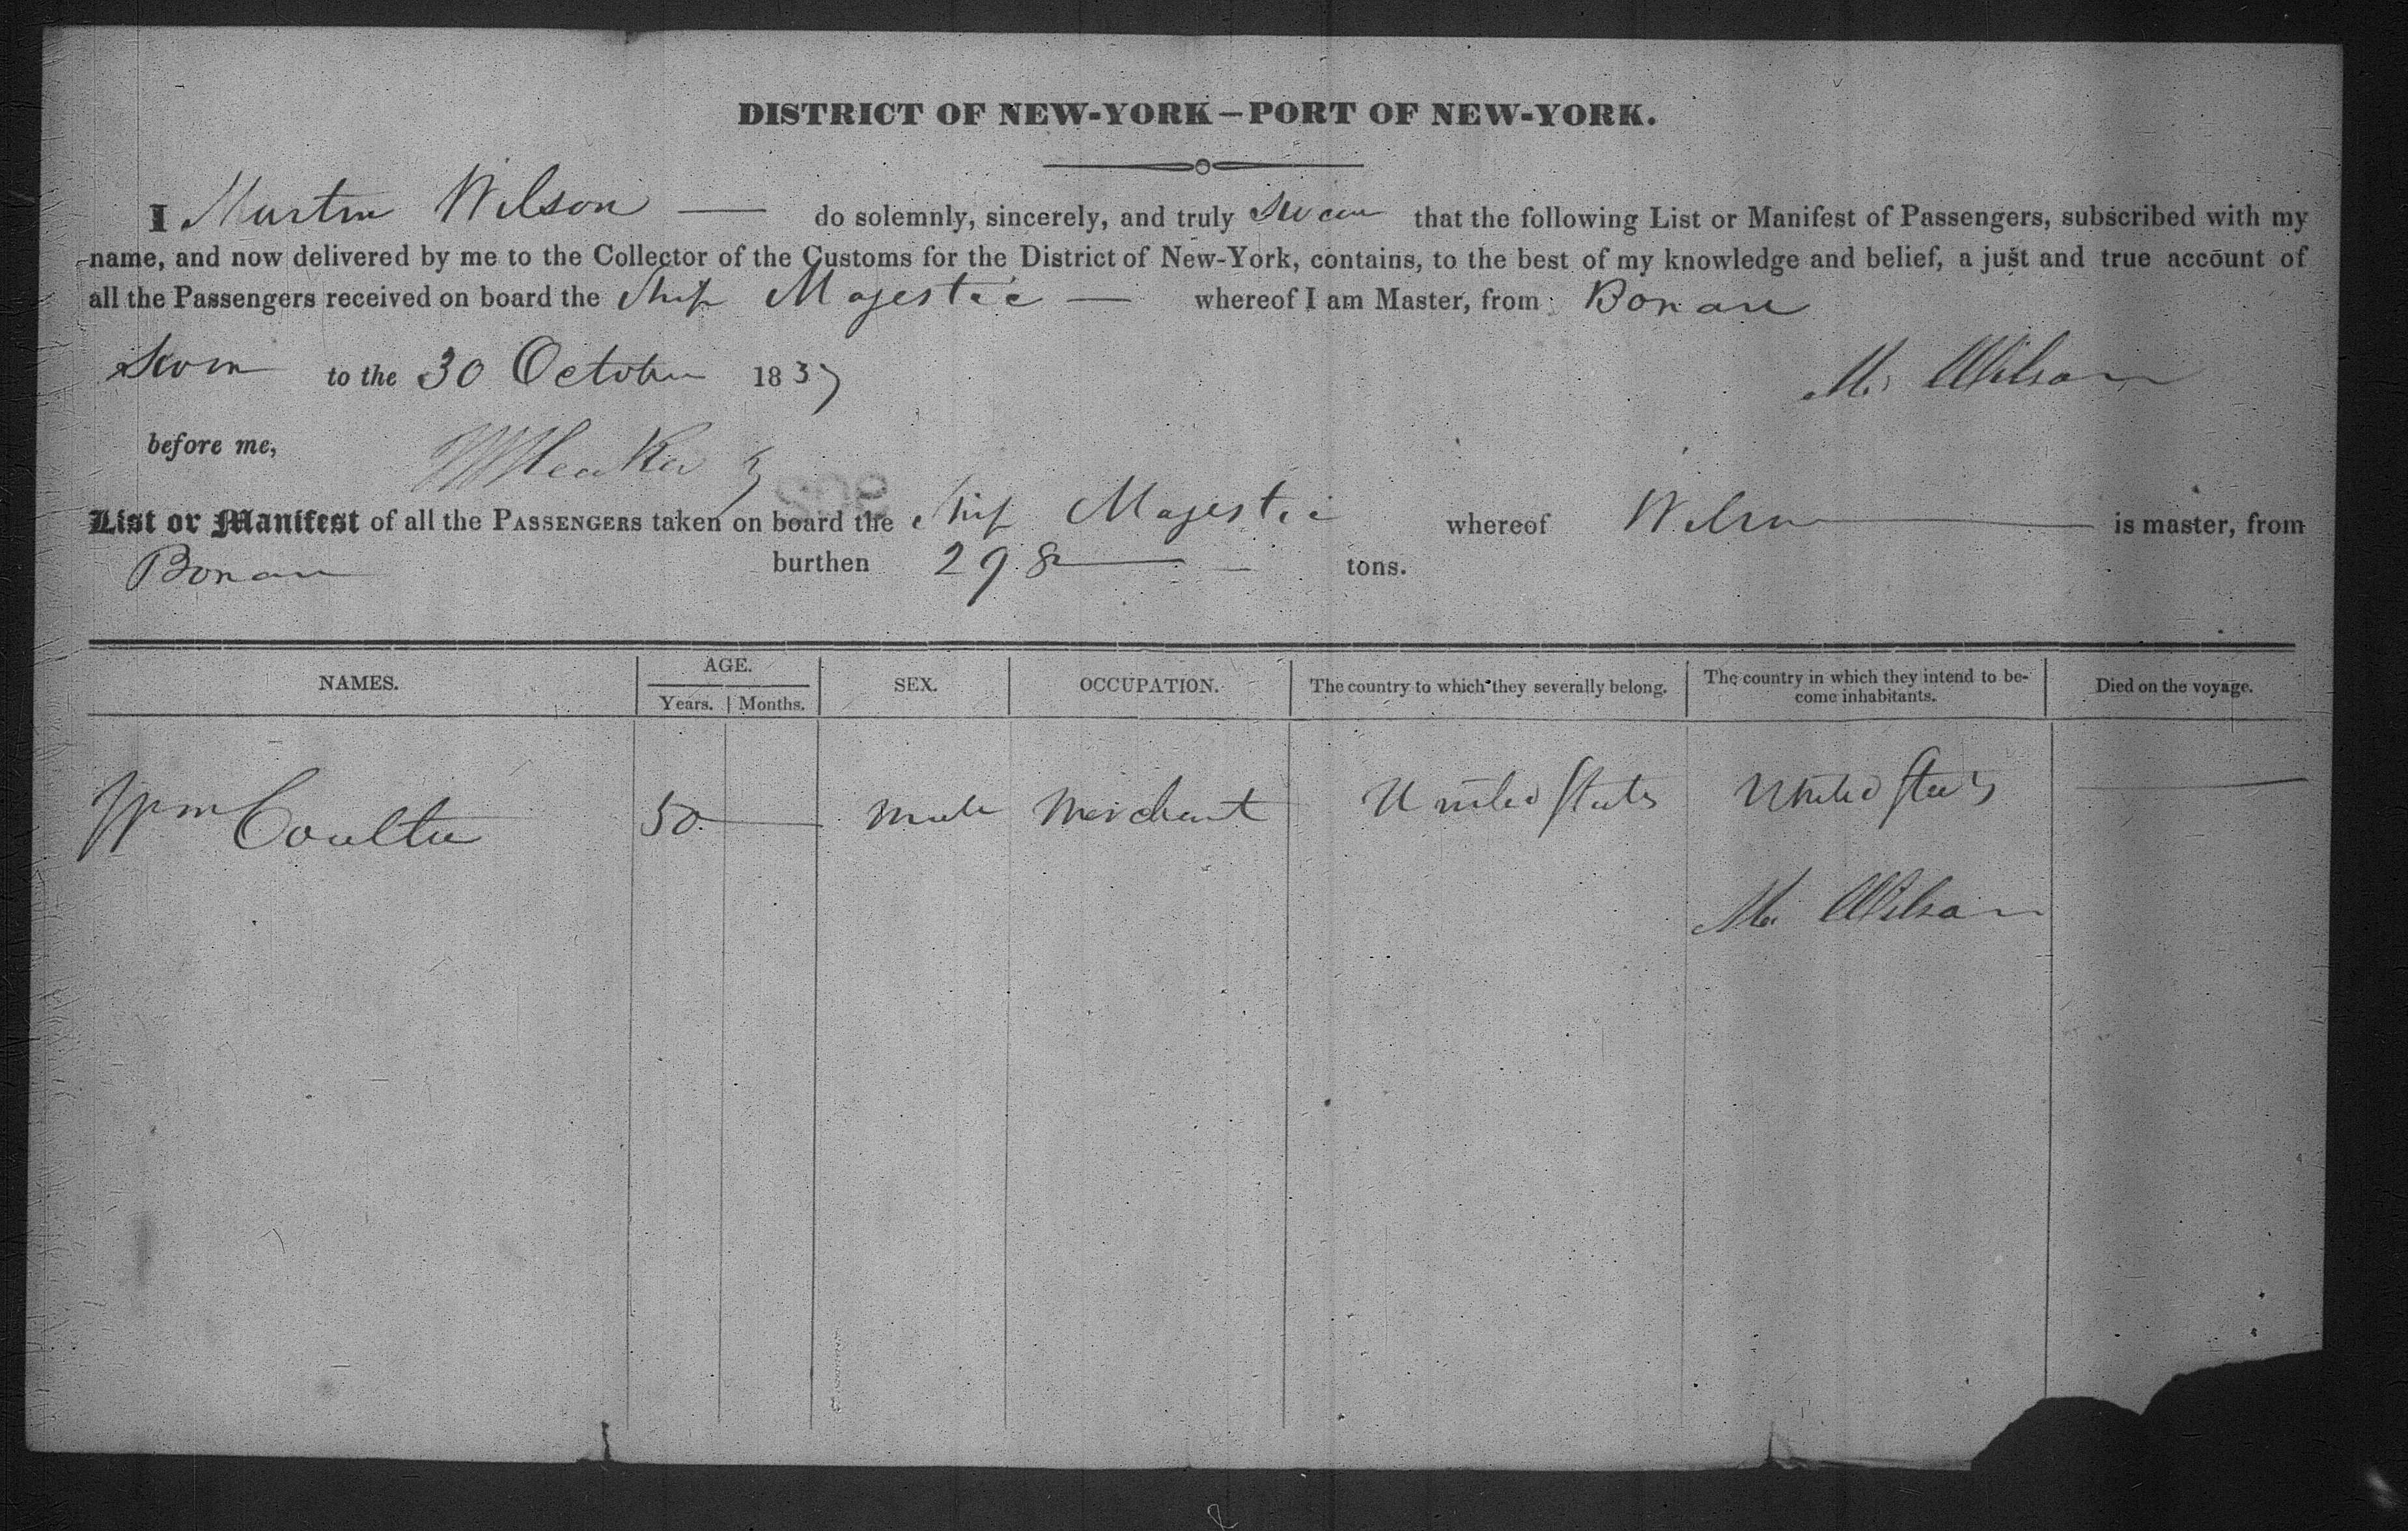 DISTRICT OF NEW-YORK—PORT OF NEW-YORK.
I Martin Wilson — do solemnly, sincerely, and truly Swear that the following List or Manifest of Passengers, subscribed with my
name, and now delivered by me to the Collector of the Customs for the District of New-York, contains, to the best of my knowledge and belief, a just and true account of
all the Passengers received on board the Ship Majestic — whereof I am Master, from Bonair
Sworn to the 30 October 1837 M. Wilson
before me,
List or Manifest of all the PASSENGERS taken on board the Ship Majestic whereof Wilson is master, from
Bonair burthen 298 tons.
NAMES. AGE. Years. Months. SEX. OCCUPATION. The country to which they severally belong. The country in which they intend to be-
come inhabitants. Died on the voyage.
Wm Coulter 50 — male Merchant United States United States —
M. Wilson